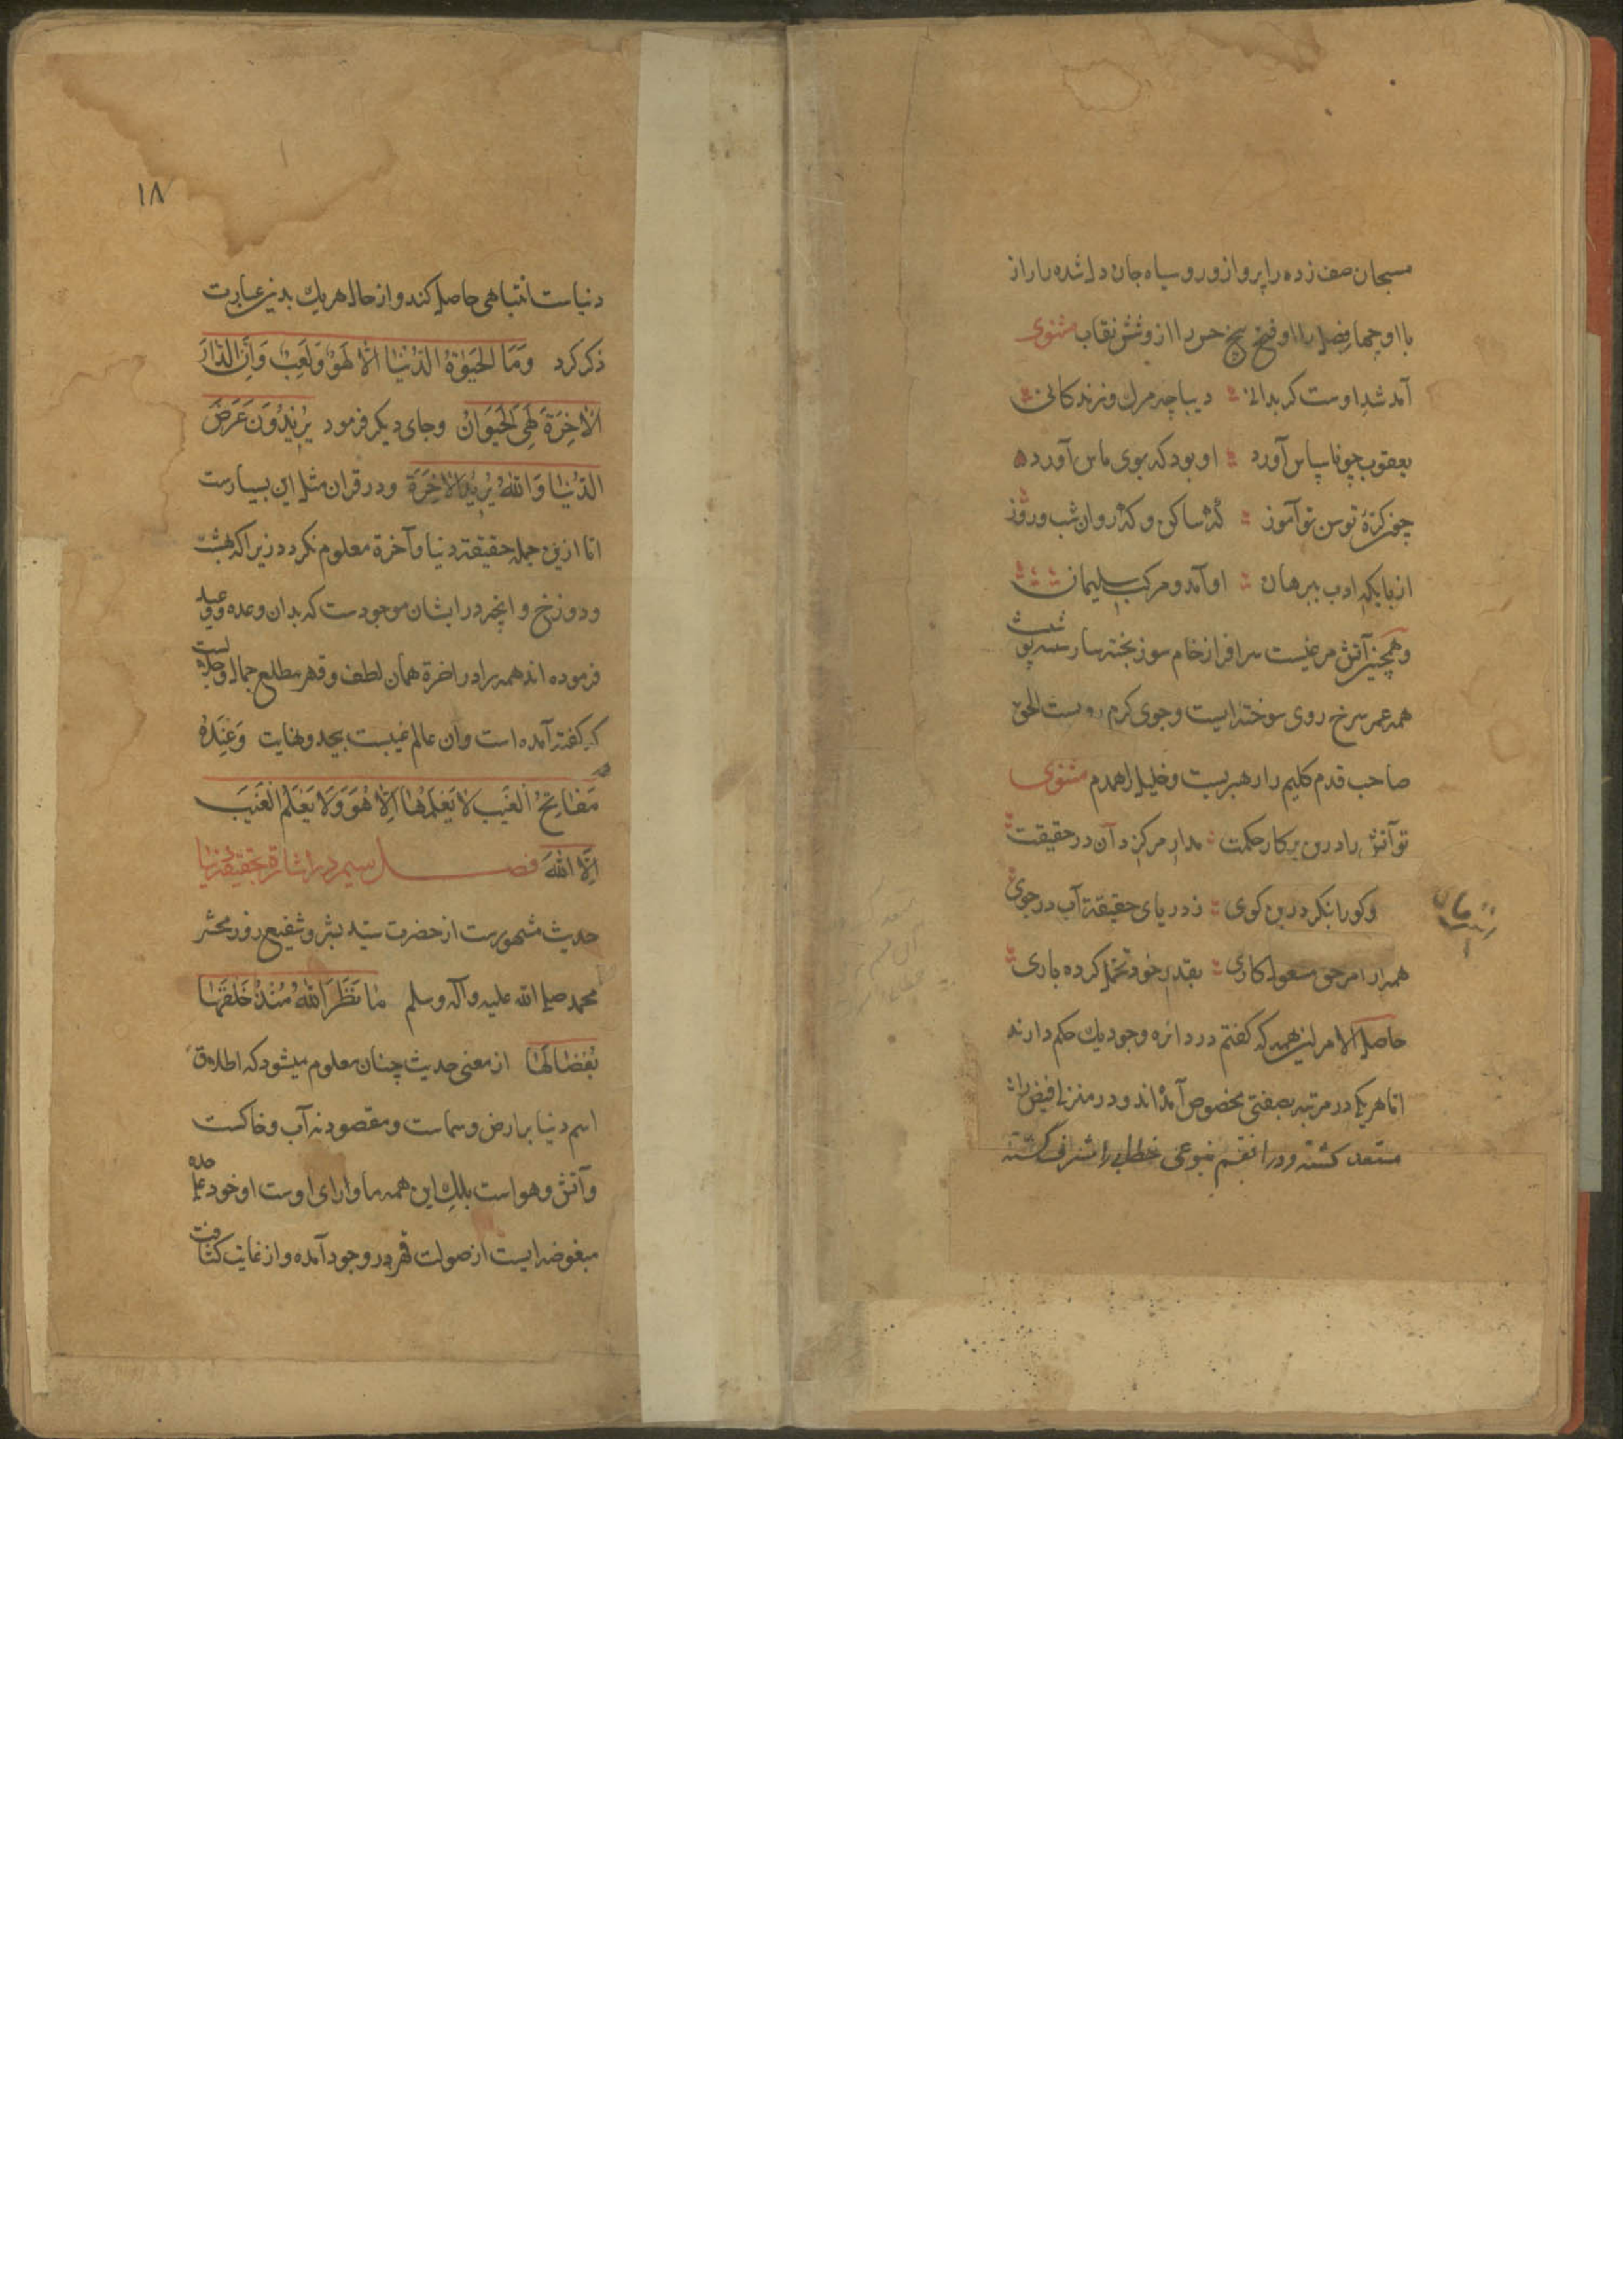 مسبحان صف زده را پرواز ورو سیاه جان دل شده را راز
با او چهار فصل را او فتح پنج حس را از وشش نقاب مثنوی
آمد شد اوست کر بدانی دیباچه مرک وزندکانی
یعقوب چو نا سپاس آورد او بود که بوی ماس آورد
چون کرهٔ توسن تو آموز که ساکن و که روان شب وروز
از با یکه ادب ببرهان او آمد و مرکب سلیمان
وهمچنین آتش مرغیست سرافراز خام سوز پخته ساز
همه عمر سرخ روی سوخته ایست وجوی کرم رو بست الحق
صاحب قدم کلیم را رهبریست وخلیل را همدم مثنوی
تو آتش را درین پرکار حکمت مدار مرکز دآن در حقیقت
وکورا بنکر درین کوی ز دریای حقیقة آب در جوی
همه را امر حق مسعول کاری بقدر خود تحمل کرده باری
حاصل الامر این همه که کفتم در دائره وجود یك حکم دارند
اما هر یکی در مرتبه بصفتی مخصوص آمده اند و در منزل فیض را
مستعد کشته و درا نقسم بنوعی خطاب را شرف کشته
۱۸
دنیاست انتباهی حاصل کند واز حال هریك بدین عبارت
ذکر کرد وَمَا الحَیٰوةُ الدُّنْیٰا اِلّٰا لَهْوٌ وَلَعِبٌ وَاِنَّ الدّٰارَ
الْاٰخِرَةَ لَهِیَ الْحَیَوَانُ وجای دیکر فرمود یُرِیْدُوْنَ عَرَضَ
الدُّنْیٰا وَاللهُ یُرِیْدُ الْاٰخِرَةَ ودر قران مثل این بسیارست
اما ازین جمله حقیقة دنیا وآخرة معلوم نکردد زیرا که بهشت
ودوزخ وانچه در ایشان موجودست که بدان وعده وعید
فرموده اند همه را در اخرة همان لطف وقهر مطلع جمال وجلالست
که کفته آمده است وآن عالم غیبست بیحد ونهایت وَعِنْدَهُ
مَفٰاتِحُ الْغَیْبِ لَا یَعْلَمُهٰا اِلَّا هُوَ وَلَا یَعْلَمُ الْغَیْبَ
اِلَّا اللهُ فصل سیم در اشارة بحقیقة دنیا
حدیث مشهورست از حضرت سید بشر وشفیع روز محشر
محمد صلی الله علیه وآله وسلم مٰا نَظَرَ اللهُ مُنْذُ خَلَقَهٰا
بُغْضًا لَهٰا از معنی حدیث چنان معلوم میشود که اطلاق
اسم دنیا بر ارض وسماست ومقصود نه آب وخاکست
وآتش وهواست بلکه این همه ماورای اوست او خود علی حده
مبغوضه ایست از صولت قهر در وجود آمده واز غایت کثافت